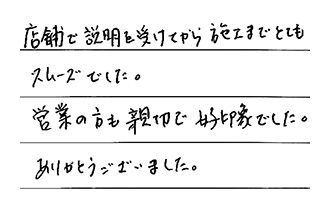 店舗で説明を受けてから施工までとても
スムーズでした。
営業の方も親切で好印象でした。
ありがとうございました。